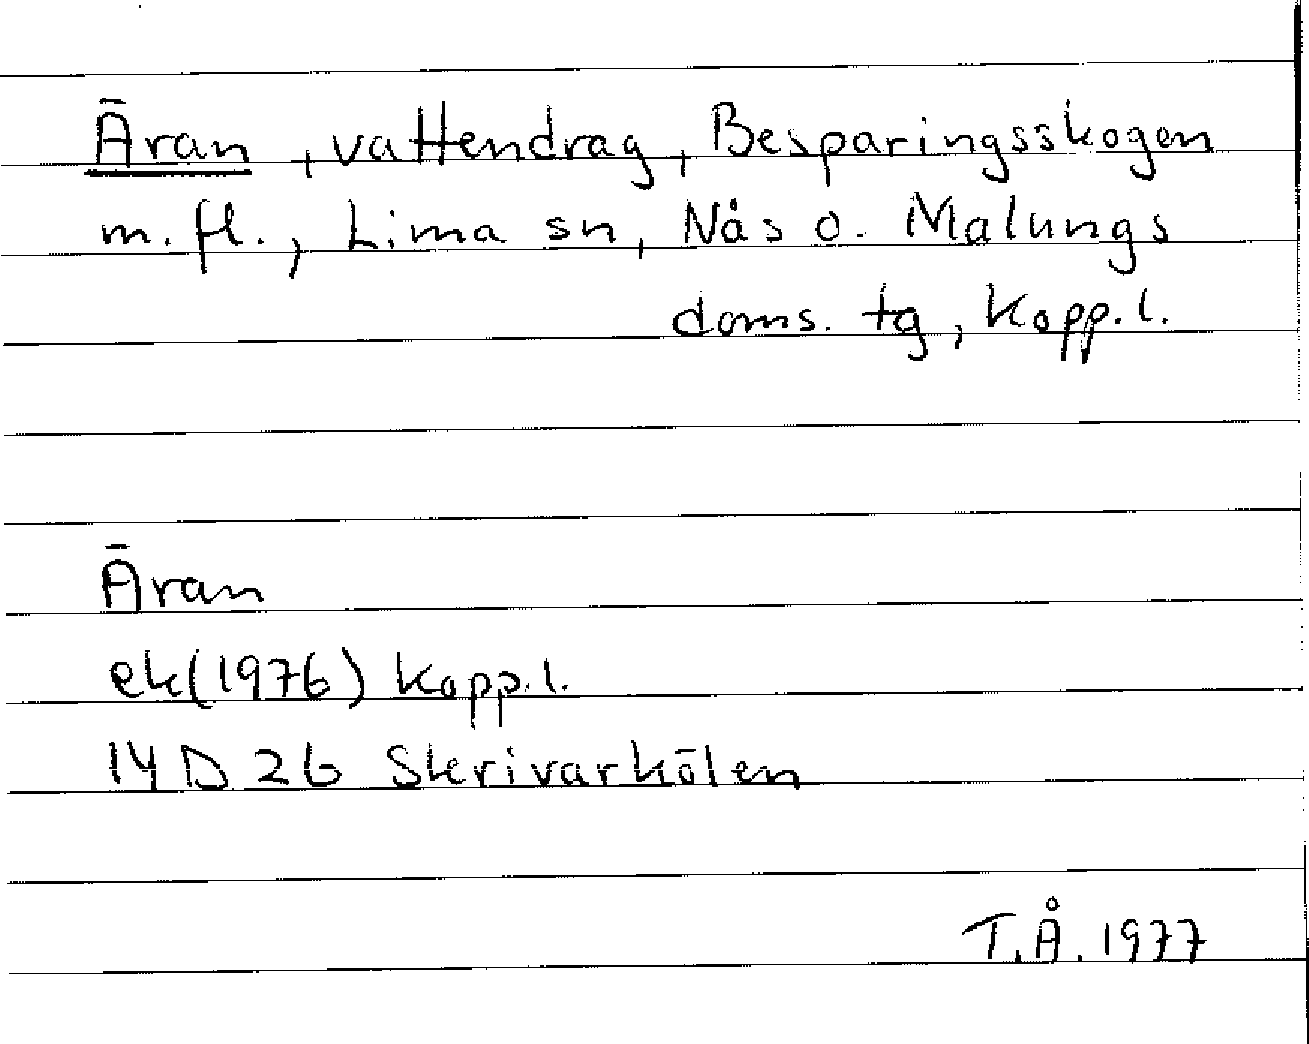 Äran, vattendrag, Besparingsskogen
m. fl., Lima sn, Nås o. Malungs
doms. tg, Kopp. l.
Äran
ek (1976) Kopp. l.
14 D 2b Skrivarkölen
T. Å. 1977